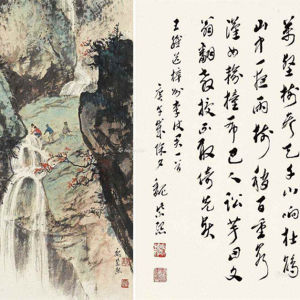 萬壑樹參天千山响杜鵑
山中一夜雨樹杪百重泉
漢女輸橦布巴人訟芋田文
翁翻教授不敢倚先賢
王維送梓州李使君一首
庚午歲除夕 魏紫熙